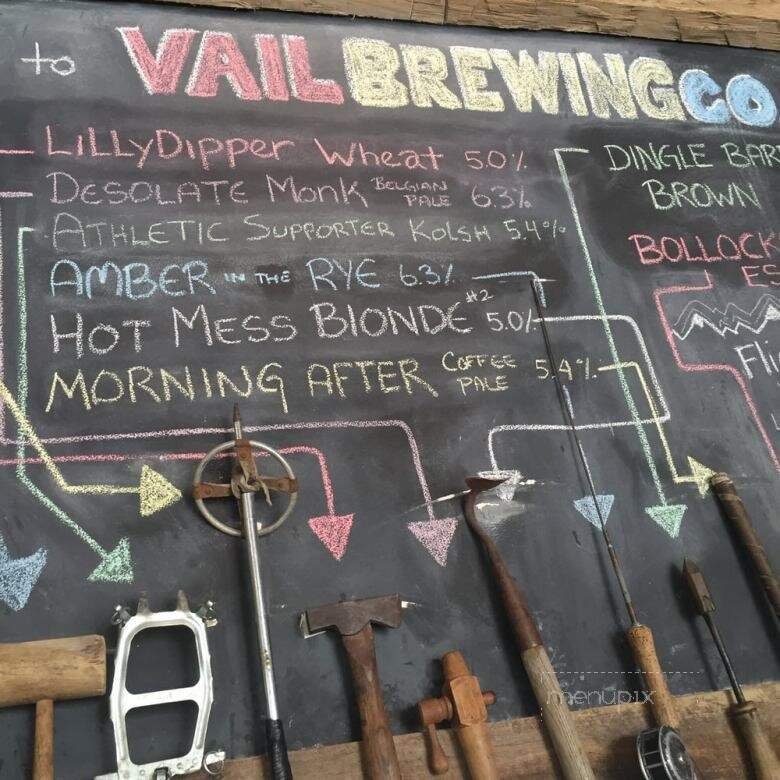 to VAIL BREWING CO
LiLLyDipper Wheat 5.0%
DESOLATE Monk BELGIAN PALE 6.3%
ATHLETIC SUPPORTER KOLSH 5.4%
AMBER IN THE RYE 6.3%
HOT MESS BLONDE #2 5.0%
MORNING AFTER COFFEE PALE 5.4%
DINGLE
BROWN
menupix